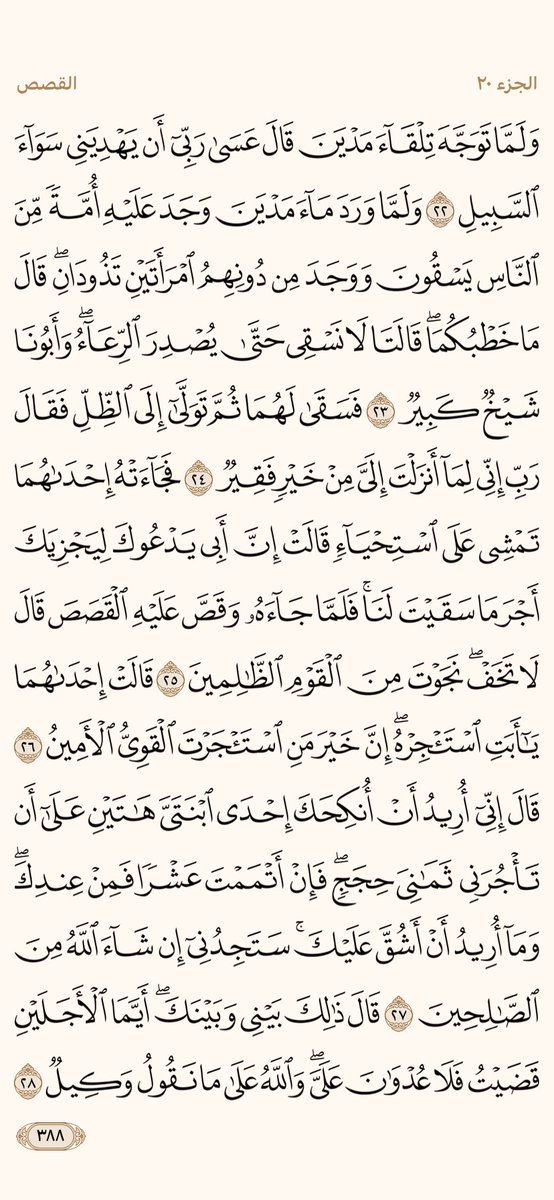 الجزء ٢٠
القصص
وَلَمَّا تَوَجَّهَ تِلۡقَآءَ مَدۡيَنَ قَالَ عَسَىٰ رَبِّيٓ أَن يَهۡدِيَنِي سَوَآءَ
ٱلسَّبِيلِ ٢٢ وَلَمَّا وَرَدَ مَآءَ مَدۡيَنَ وَجَدَ عَلَيۡهِ أُمَّةٗ مِّنَ
ٱلنَّاسِ يَسۡقُونَ وَوَجَدَ مِن دُونِهِمُ ٱمۡرَأَتَيۡنِ تَذُودَانِۖ قَالَ
مَا خَطۡبُكُمَاۖ قَالَتَا لَا نَسۡقِي حَتَّىٰ يُصۡدِرَ ٱلرِّعَآءُۖ وَأَبُونَا
شَيۡخٞ كَبِيرٞ ٢٣ فَسَقَىٰ لَهُمَا ثُمَّ تَوَلَّىٰٓ إِلَى ٱلظِّلِّ فَقَالَ
رَبِّ إِنِّي لِمَآ أَنزَلۡتَ إِلَيَّ مِنۡ خَيۡرٖ فَقِيرٞ ٢٤ فَجَآءَتۡهُ إِحۡدَىٰهُمَا
تَمۡشِي عَلَى ٱسۡتِحۡيَآءٖ قَالَتۡ إِنَّ أَبِي يَدۡعُوكَ لِيَجۡزِيَكَ
أَجۡرَ مَا سَقَيۡتَ لَنَاۚ فَلَمَّا جَآءَهُۥ وَقَصَّ عَلَيۡهِ ٱلۡقَصَصَ قَالَ
لَا تَخَفۡۖ نَجَوۡتَ مِنَ ٱلۡقَوۡمِ ٱلظَّٰلِمِينَ ٢٥ قَالَتۡ إِحۡدَىٰهُمَا
يَٰٓأَبَتِ ٱسۡتَـٔۡجِرۡهُۖ إِنَّ خَيۡرَ مَنِ ٱسۡتَـٔۡجَرۡتَ ٱلۡقَوِيُّ ٱلۡأَمِينُ ٢٦
قَالَ إِنِّيٓ أُرِيدُ أَنۡ أُنكِحَكَ إِحۡدَى ٱبۡنَتَيَّ هَٰتَيۡنِ عَلَىٰٓ أَن
تَأۡجُرَنِي ثَمَٰنِيَ حِجَجٖۖ فَإِنۡ أَتۡمَمۡتَ عَشۡرٗا فَمِنۡ عِندِكَۖ
وَمَآ أُرِيدُ أَنۡ أَشُقَّ عَلَيۡكَۚ سَتَجِدُنِيٓ إِن شَآءَ ٱللَّهُ مِنَ
ٱلصَّٰلِحِينَ ٢٧ قَالَ ذَٰلِكَ بَيۡنِي وَبَيۡنَكَۖ أَيَّمَا ٱلۡأَجَلَيۡنِ
قَضَيۡتُ فَلَا عُدۡوَٰنَ عَلَيَّۖ وَٱللَّهُ عَلَىٰ مَا نَقُولُ وَكِيلٞ ٢٨
٣٨٨